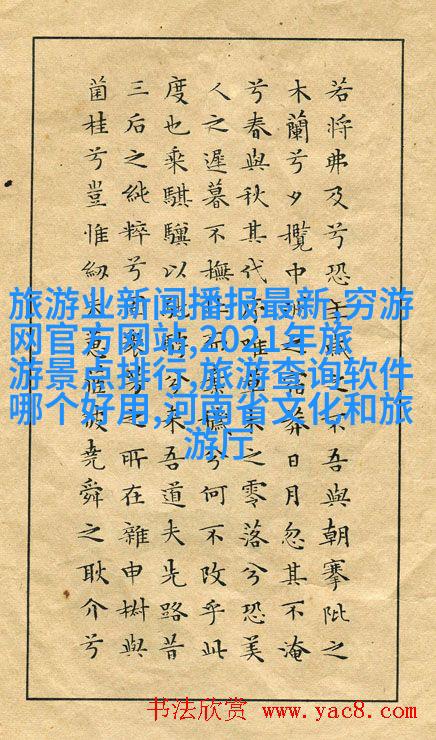 旅游业新闻播报最新,穷游
网官方网站,2021年旅
游景点排行,旅游查询软件
哪个好用,河南省文化和旅
游厅
若將弗及兮恐之不吾與朝搴阰之
木蘭兮夕攬中之莽日月忽其不淹
兮春與秋其代唯之零落兮恐美
人之遲暮不撫兮何不改乎此
度也乘騏驥以兮來吾道夫先路昔
三后之純粹兮之所在雜申椒與
菌桂兮豈惟紉彼堯舜之耿介兮
书法欣赏 www.yac8.com